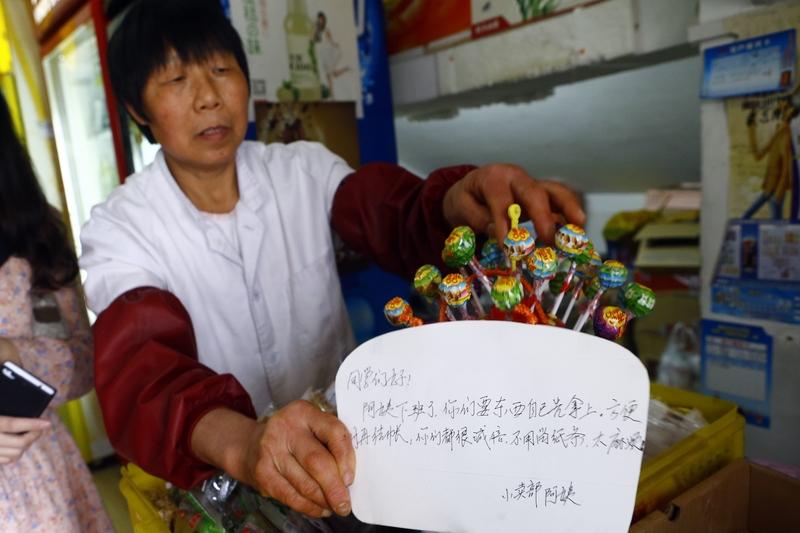 同学们好!
阿姨下班了.你们要东西自己先拿上.方便
时再结帐,你们都很诚信.不用留纸条.太麻烦.
小卖部阿姨